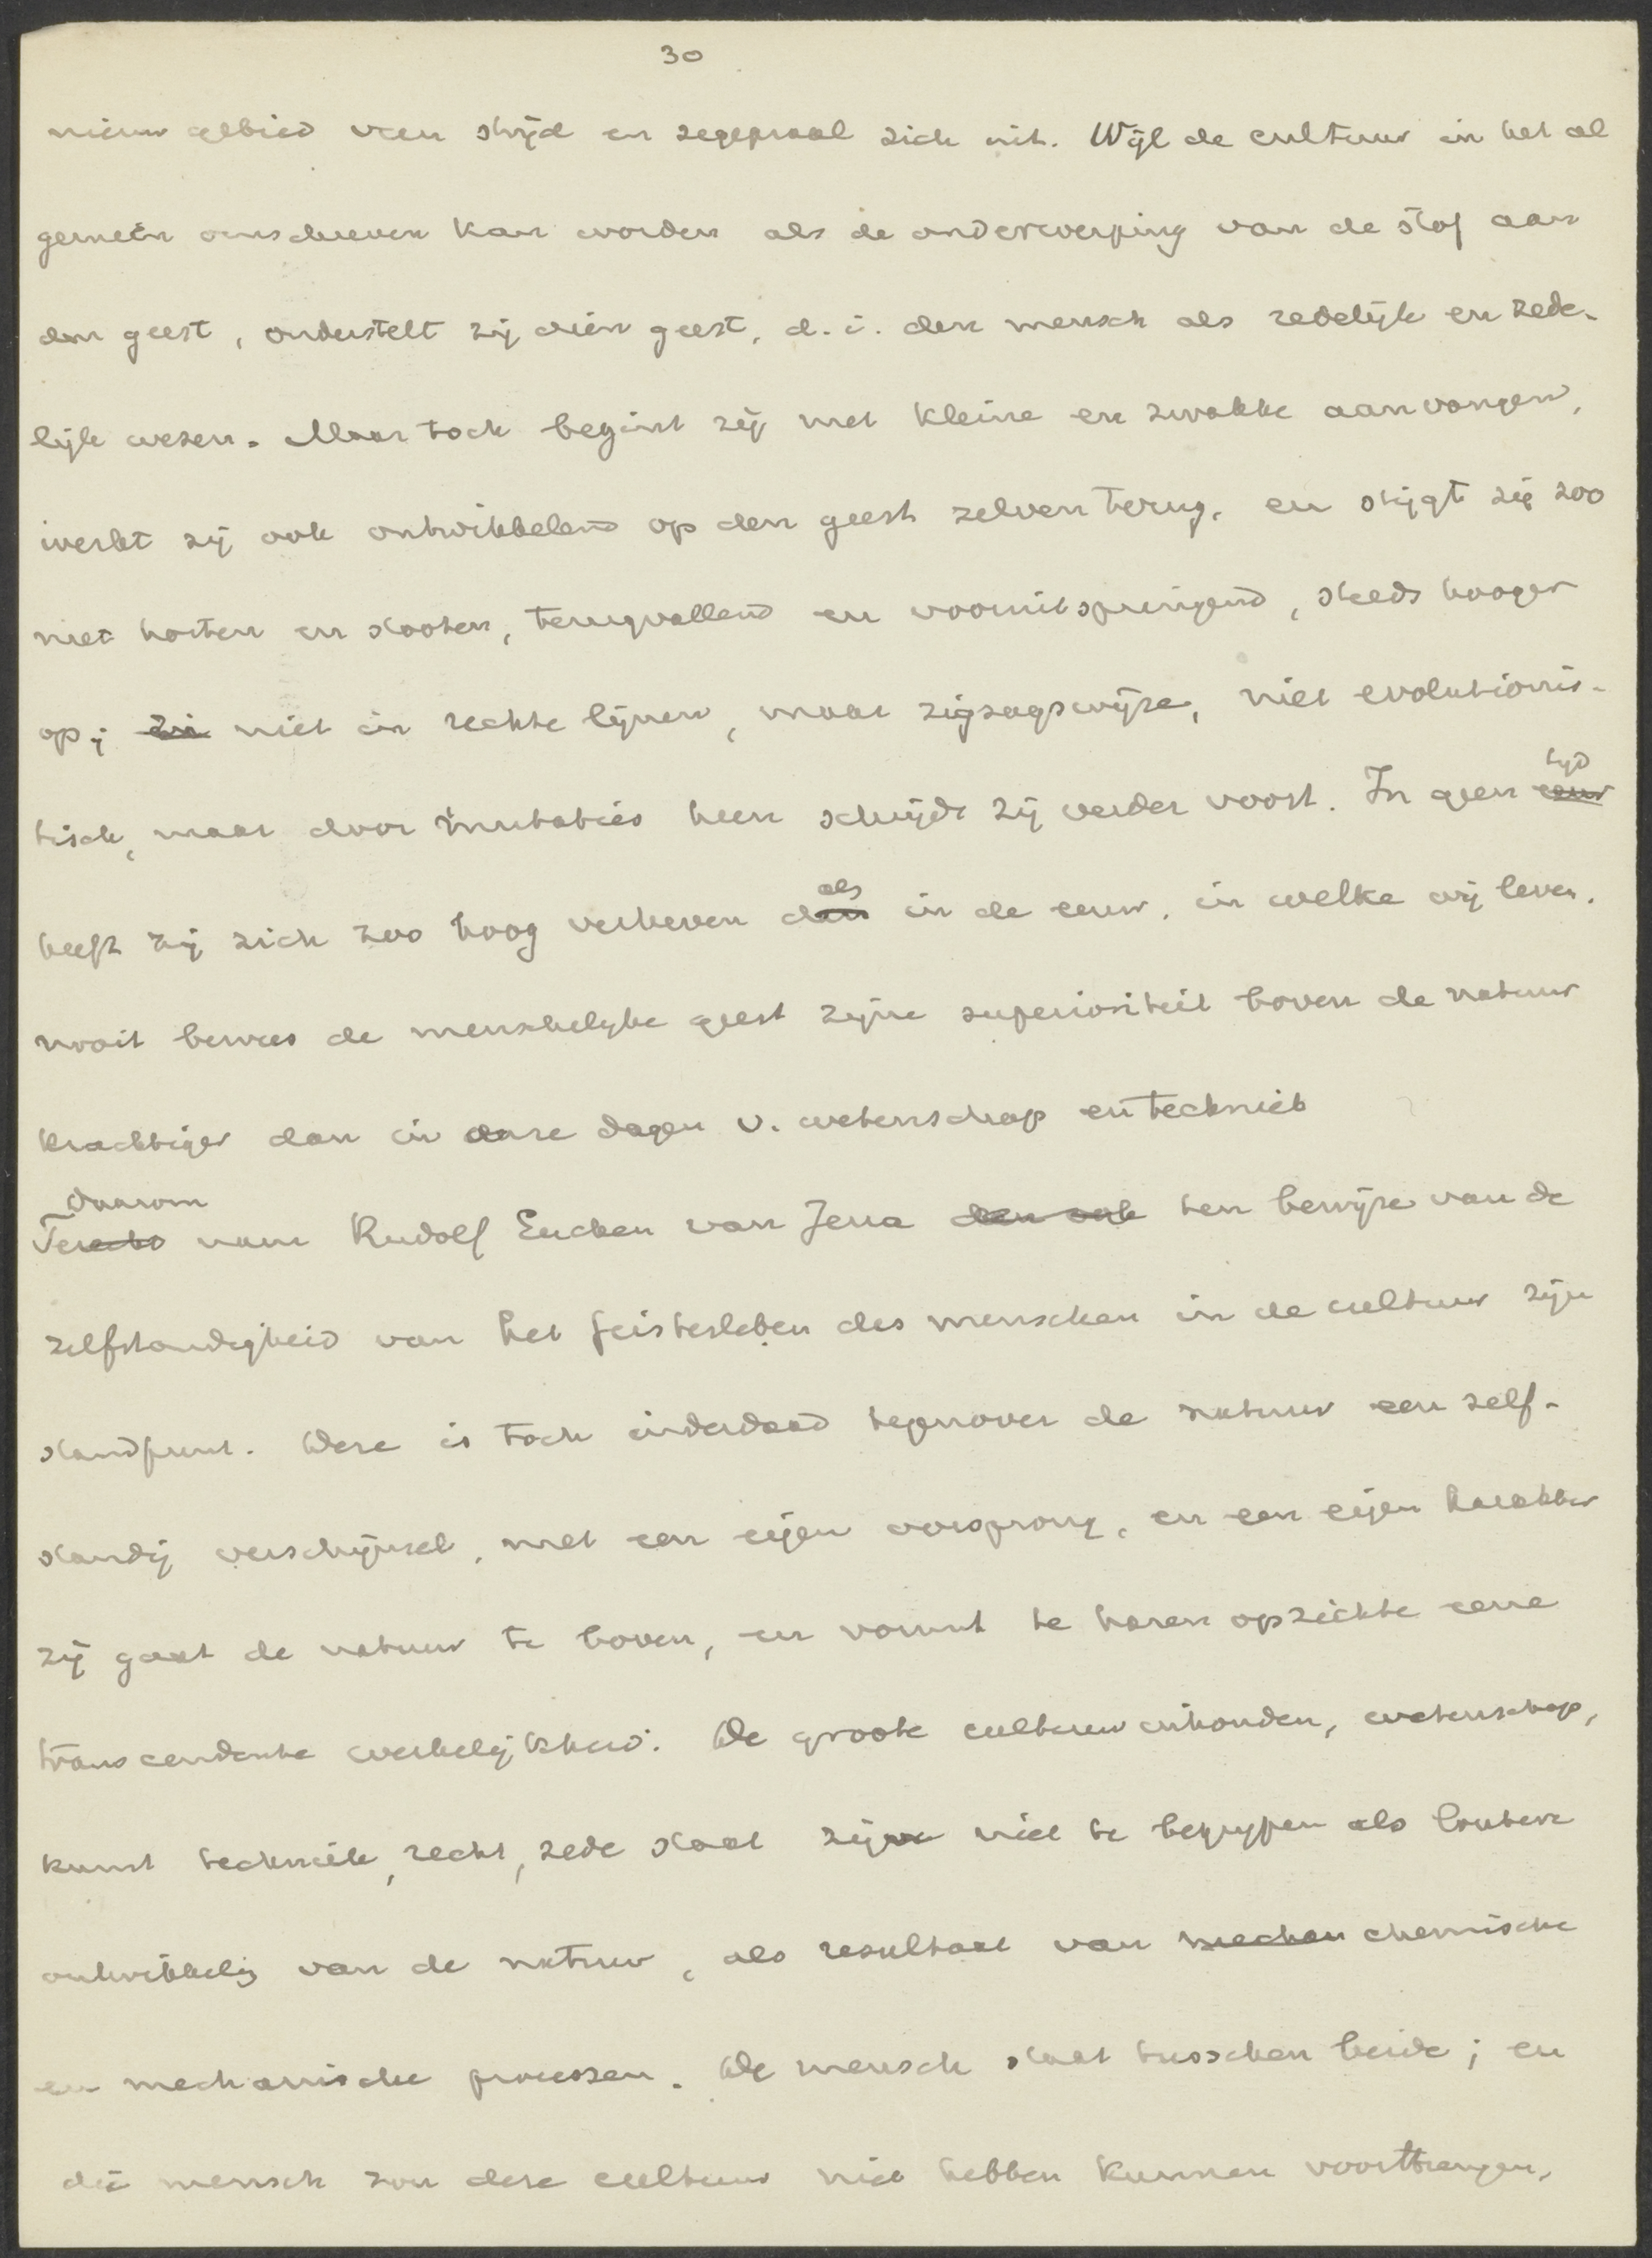 30
nieuw gebied van strijd en zegepraal zich uit. Wijl de cultuur in het al
gemeen omschreven kan worden als de onderwerping van de stof aan
den geest, onderstelt zij dien geest, d.i. den mensch als redelijk en zede-
lijk wezen. Maar toch begint zij met kleine en zwakke aanvangen,
werkt zij ook ontwikkelend op den geest zelven terug, en stijgt zij zoo
met horten en stooten, terugvallend en vooruitspringend, steeds hooger
op; en niet in rechte lijnen, maar zigzagswijze, niet evolutionis-
tisch, maar door mutaties heen schrijdt zij verder voort. In geen eeuw tijd
heeft zij zich zoo hoog verheven dan als in de eeuw, in welke wij leven.
nooit bewees de menschelijke geest zijne superioriteit boven de natuur
krachtiger dan in onze dagen v. wetenschap en techniek
Daarom
Terecht nam Rudolf Eucken van Jena dan ook ten bewijze van de
zelfstandigheid van het Geistesleben des menschen in de cultuur zijn
standpunt. Deze is toch inderdaad tegenover de natuur een zelf-
standig verschijnsel, met een eigen oorsprong, en een eigen karakter
zij gaat de natuur te boven, en vormt te haren opzichte eene
transcendente werkelijkheid. De groote cultuurinhouden, wetenschap,
kunst techniek, recht, zede staat zijn niet te begrijpen als loutere
ontwikkelig van de natuur, als resultaat van mechan chemische
en mechanische processen. De mensch staat tusschen beide; en
die mensch zou deze cultuur niet hebben kunnen voortbrengen,